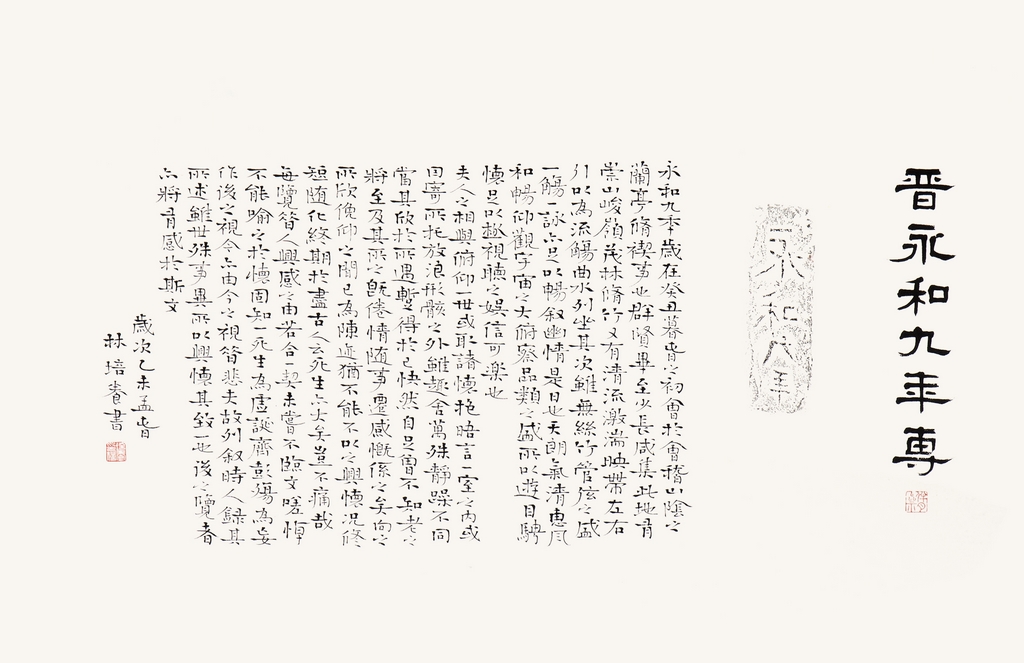 晋永和九年專
永和九年
永和九年歲在癸丑暮春之初會於會稽山陰之
蘭亭脩禊事也群賢畢至少長咸集此地有
崇山峻嶺茂林脩竹又有清流激湍映帶左右
引以為流觴曲水列坐其次雖無絲竹管弦之盛
一觴一詠亦足以暢敘幽情是日也天朗氣清惠風
和暢仰觀宇宙之大俯察品類之盛所以遊目騁
懷足以極視聽之娛信可樂也
夫人之相與俯仰一世或取諸懷抱晤言一室之內或
因寄所托放浪形骸之外雖趣舍萬殊靜躁不同
當其欣於所遇暫得於己快然自足曾不知老之
將至及其所之既倦情随事遷感慨係之矣向之
所欣俛仰之間已為陳迹猶不能不以之興懷況修
短随化終期於盡古人云死生亦大矣豈不痛哉
每覽昔人興感之由若合一契未嘗不臨文嗟悼
不能喻之於懷固知一死生為虛誕齊彭殤為妄
作後之視今亦由今之視昔悲夫故列叙時人錄其
所述雖世殊事異所以興懷其致一也後之覽者
亦將有感於斯文
歲次乙未孟春
林培養書